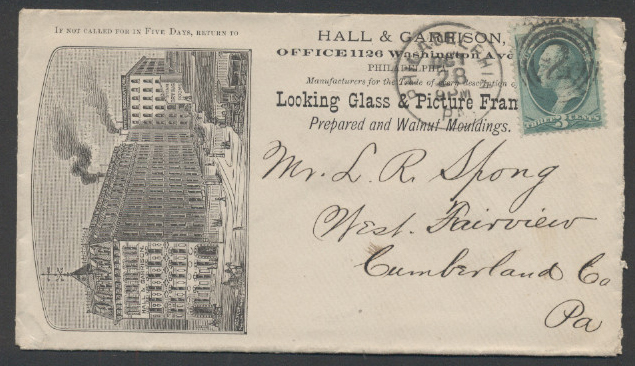 IF NOT CALLED FOR IN FIVE DAYS, RETURN TO
HALL & GARRISON,
OFFICE 1126 Washington Ave
PHILADELPHIA
Manufacturers for the Trade of every description of
Looking Glass & Picture Fram
Prepared and Walnut Mouldings.
PHILADELPHIA
28
PM
PA
THREE 3 CENTS
HALL & GARRISON
Mr. L. R. Spong
West Fairview
Cumberland Co
Pa